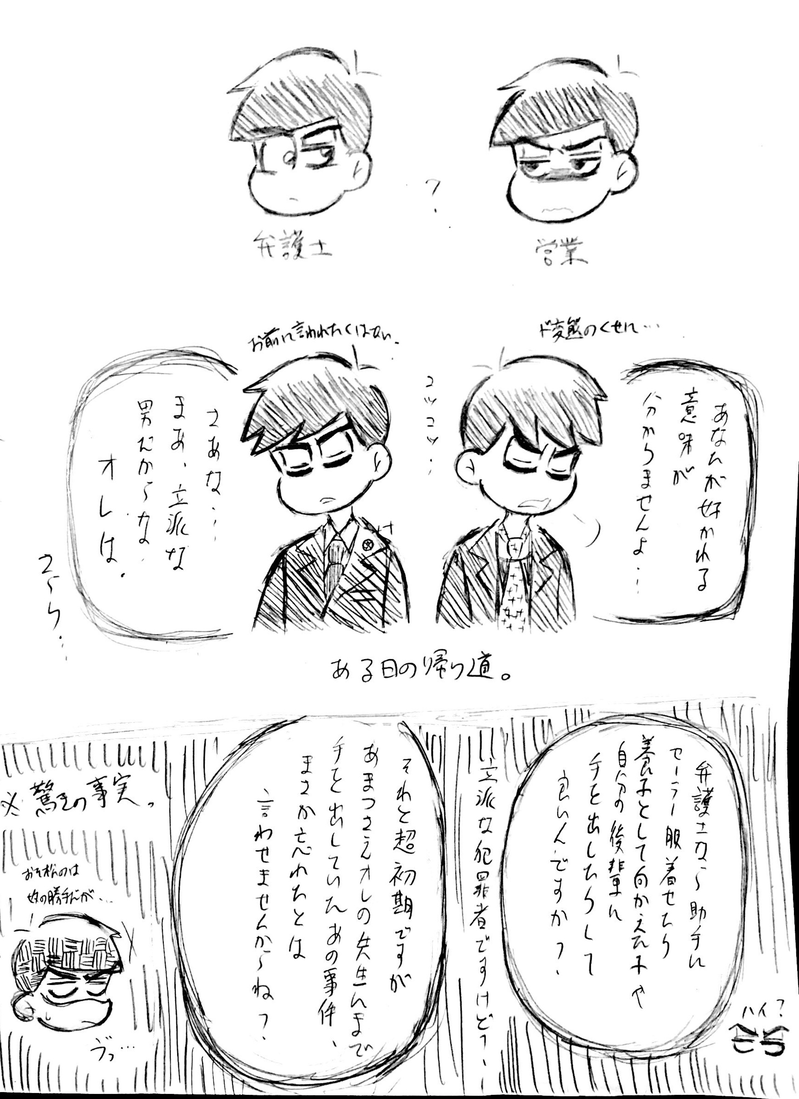 弁護士
営業
?
お前に言われたくはない。
ド変態のくせに…
あなたが好かれる
意味が
分かりませんよ…
コツコツ…
さあな…
まあ、立派な
男だからな
オレは。
ある日の帰り道。
弁護士なら助手に
セーラー服着せたり
養子として向かえた子や
自分の後輩に
手を出したりして
良いんですか?
ハイ?
立派な犯罪者ですけど?…
それと超初期ですが
あまつさえオレの先生にまで
手を出していたあの事件、
まさか忘れたとは
言わせませんからね?
※驚きの事実。
おそ松のは
奴の勝手だが…
ヴっ…